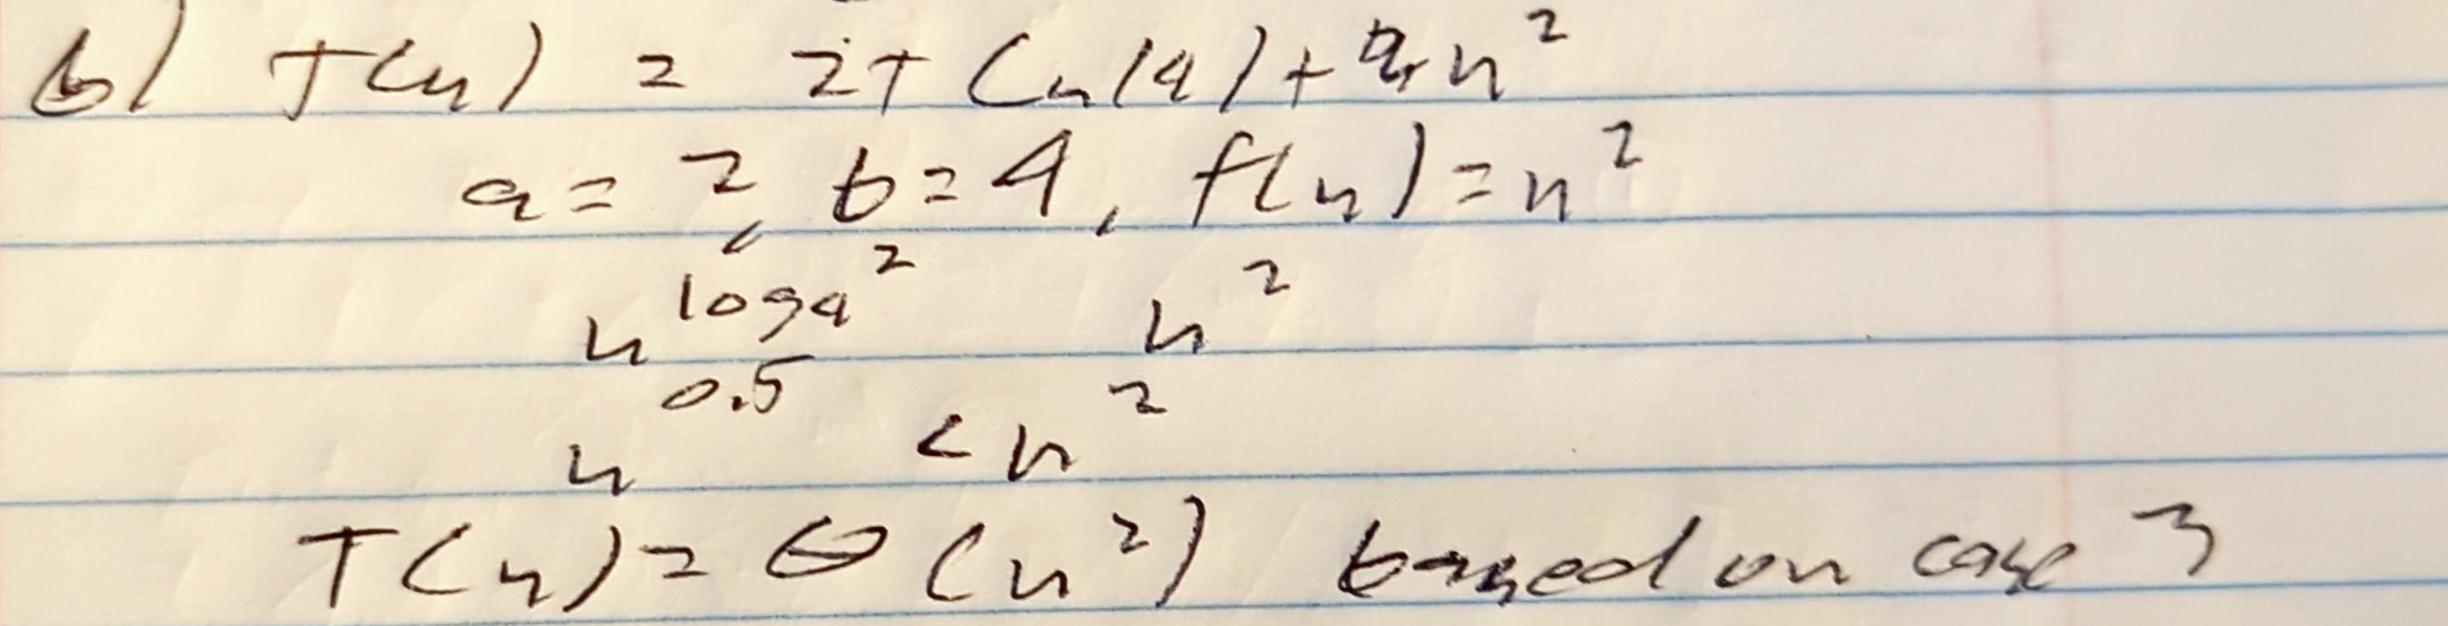 b) T(n) = 2T(n/4) + n²
a = 2, b = 4, f(n) = n²
n^log₄2 n²
n^0.5 < n²
T(n) = Θ(n²) based on case 3